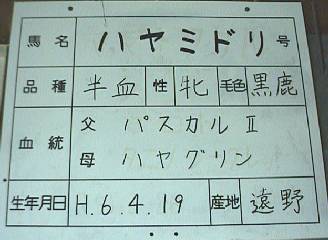 馬名 ハヤミドリ号
品種 半血 性 牝 毛色 黒鹿
血統 父 パスカルⅡ
母 ハヤグリン
生年月日 H.6.4.19 産地 遠野